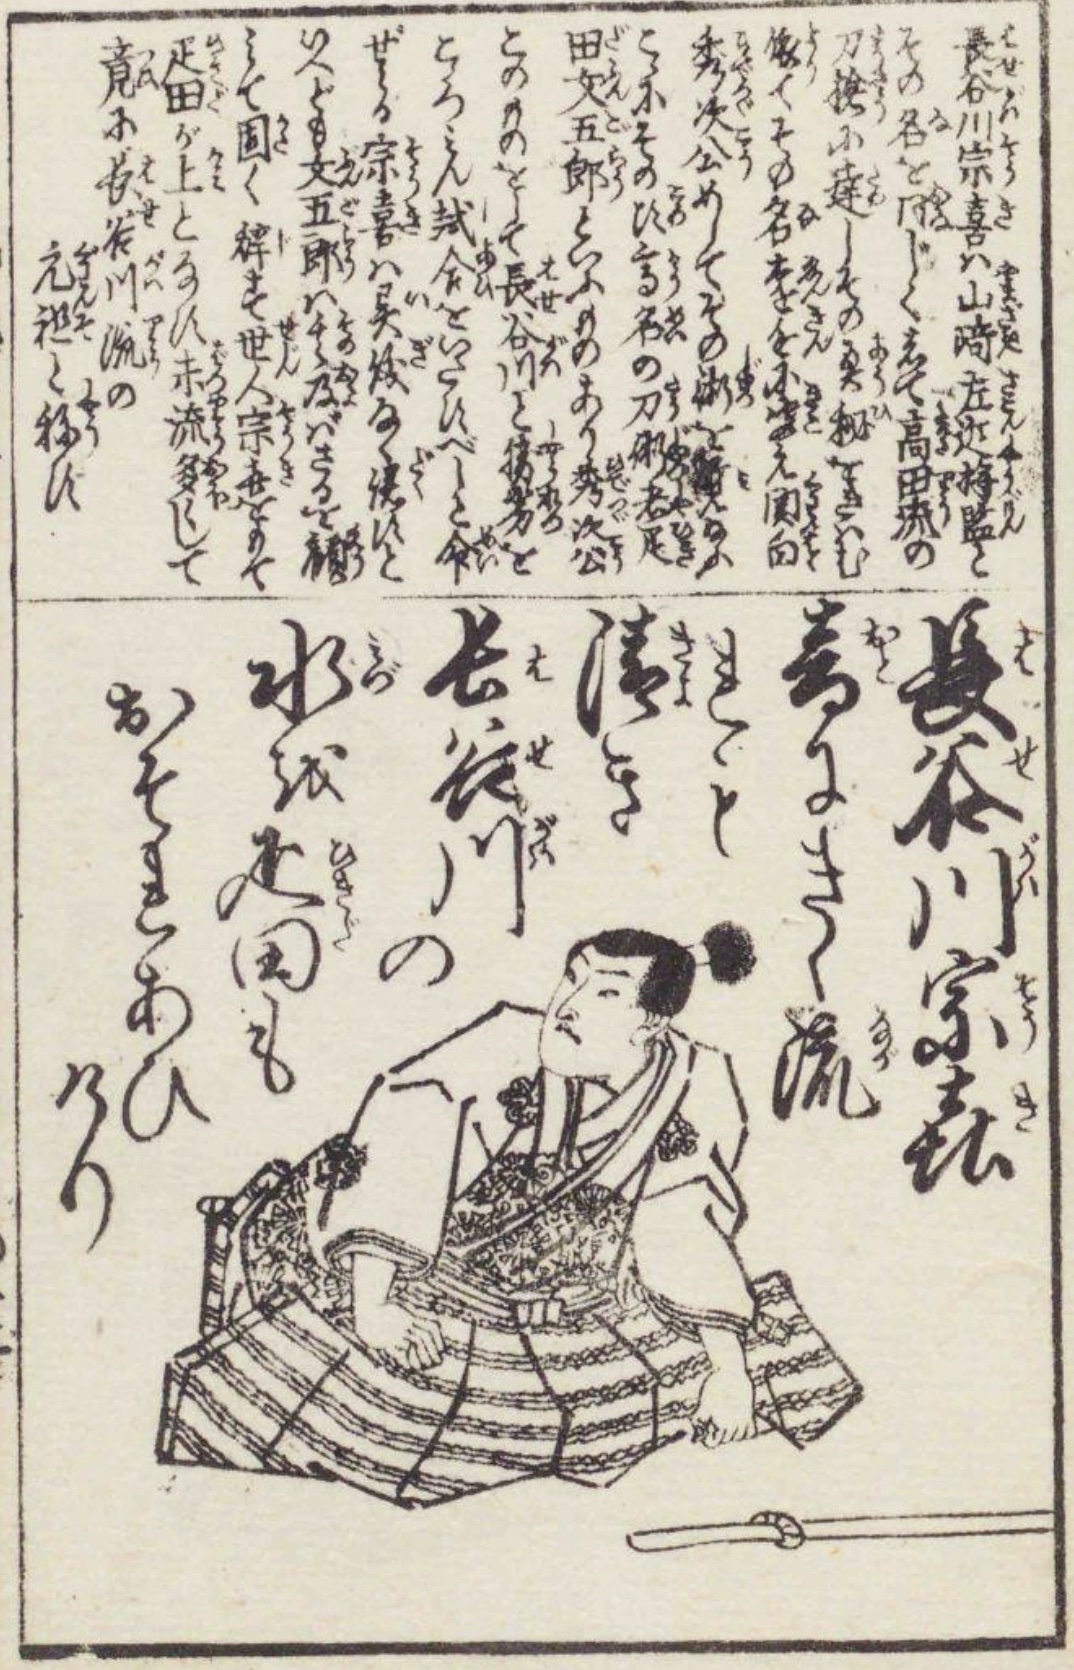 長谷川宗喜ハ山﨑左近将監と
その名を同じくして高田流の
刀術に達しその奥秘をきはむ
依てその名遠近に聞え関白
秀次公めしてその術を覧給ふ
こゝにその頃高名の刀術者疋
田文五郎といふものあり秀次公
このものをして長谷川と勝劣を
こゝろみん試合をいたすべしと命
ぜらる宗喜ハ異儀なく諾すと
いへども文五郎ハ其及バざるを顧
みて固く辞す世人宗喜をもて
疋田が上となす末流多くして
竟に長谷川流の
元祖と称す
長谷川宗㐂
音にきく流
れゝど
清き
長谷川の
水は疋田も
おそれあひ
けり